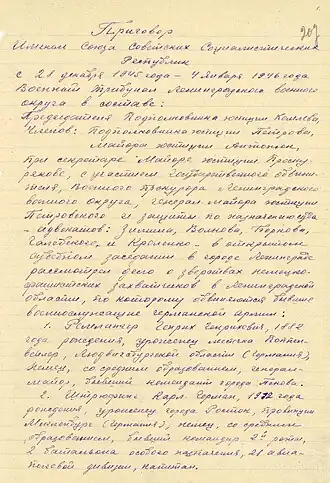 Приговор
207
Именем Союза Советских Социалистических
Республик
с 28 декабря 1945 года – 4 января 1946 года
Военный Трибунал Ленинградского военного
округа в составе:
Председателя Подполковника юстиции Комлева,
Членов: Подполковника юстиции Петрова,
Майора юстиции Антонюк,
При секретаре Майоре юстиции
с участием Государственного обвини-
теля, Военного Прокурора Ленинградского
военного округа, генерал-майора юстиции
Петровского и защиты по назначению суда
– адвокатов: Зимина, Волкова, Бортова,
и Кроленко – в открытом
судебном заседании в городе Ленинграде
рассмотрел дело о зверствах немецко-
фашистских захватчиков в Ленинградской
области, по которому обвиняются бывшие
военнослужащие германской армии:
1. Ремлингер Генрих Генрихович, 1882
года рождения, уроженец местечка Поппен-
вейлер, Людвигсбургской области (Германия),
немец, со средним образованием, генерал-
майор, бывший комендант города Пскова.
2. Штрюфинг Карл-Герман, 1912 года
рождения, уроженец города Росток, провинции
Мекленбург (Германия), немец, со средним
образованием, бывший командир 2й роты,
2 батальона особого назначения, 21 авиа-
полевой дивизии, капитан.